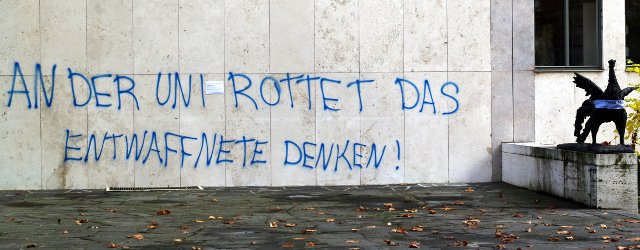 AN DER UNI ROTTET DAS
ENTWAFFNETE DENKEN!